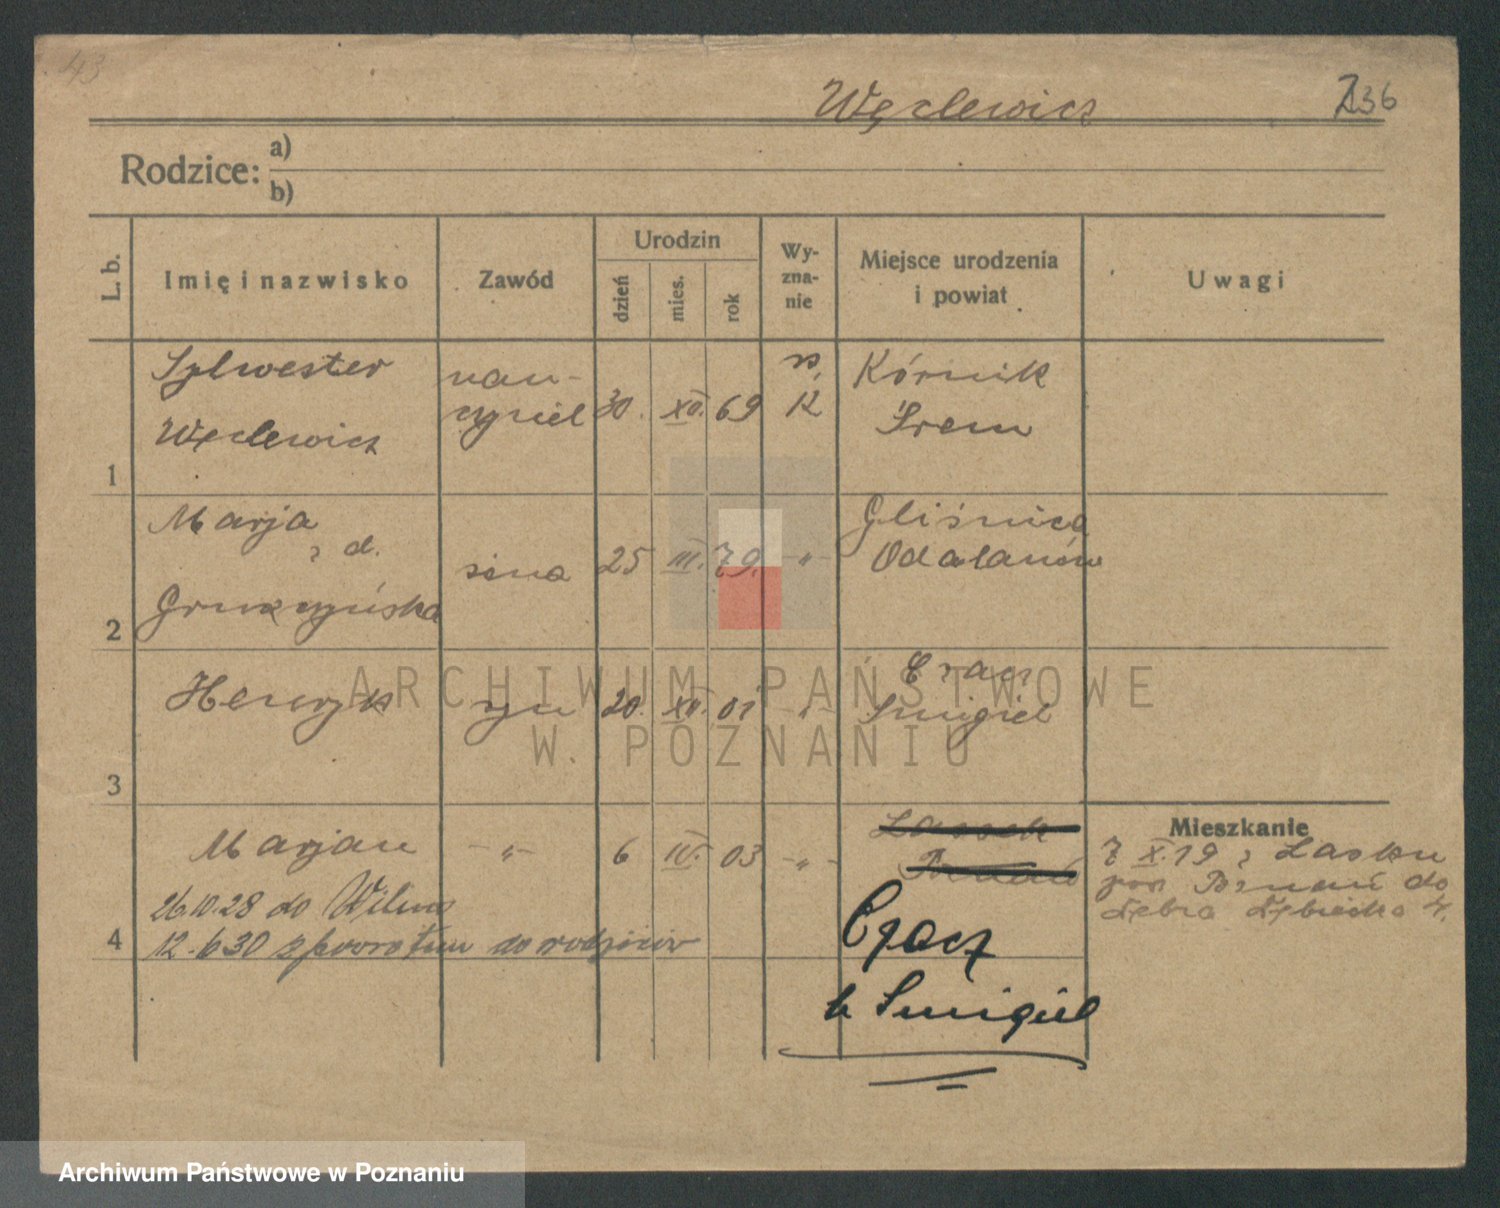 43
Węclewicz 736
Rodzice: a)
b)
L. b.
Imię i nazwisko
Zawód
Urodzin
dzień
mies.
rok
Wy-
zna-
nie
Miejsce urodzenia
i powiat
Uwagi
1
Sylwester
Węclewicz
nau-
czyciel
30. XII. 69
r.
K
Kórnik
Śrem
2
Marja
z d.
Gruszczyńska
żona
25 III. 79.
-"-
Gliśnica
Odalanów
3
Henryk
syn
20. XII. 01
-"-
Czacz
Śmigiel
4
Marjan
-"-
6 IV. 03
-"-
Lassek
Poznań
26.10.28 do Wilna
12.6.30 z powrotem do rodziców
Czacz
b Śmigiel
Mieszkanie
7 X. 19 z Lasku
pow Poznań do
Dębca Dębiecka 4.
ARCHIWUM PAŃSTWOWE
W POZNANIU
Archiwum Państwowe w Poznaniu